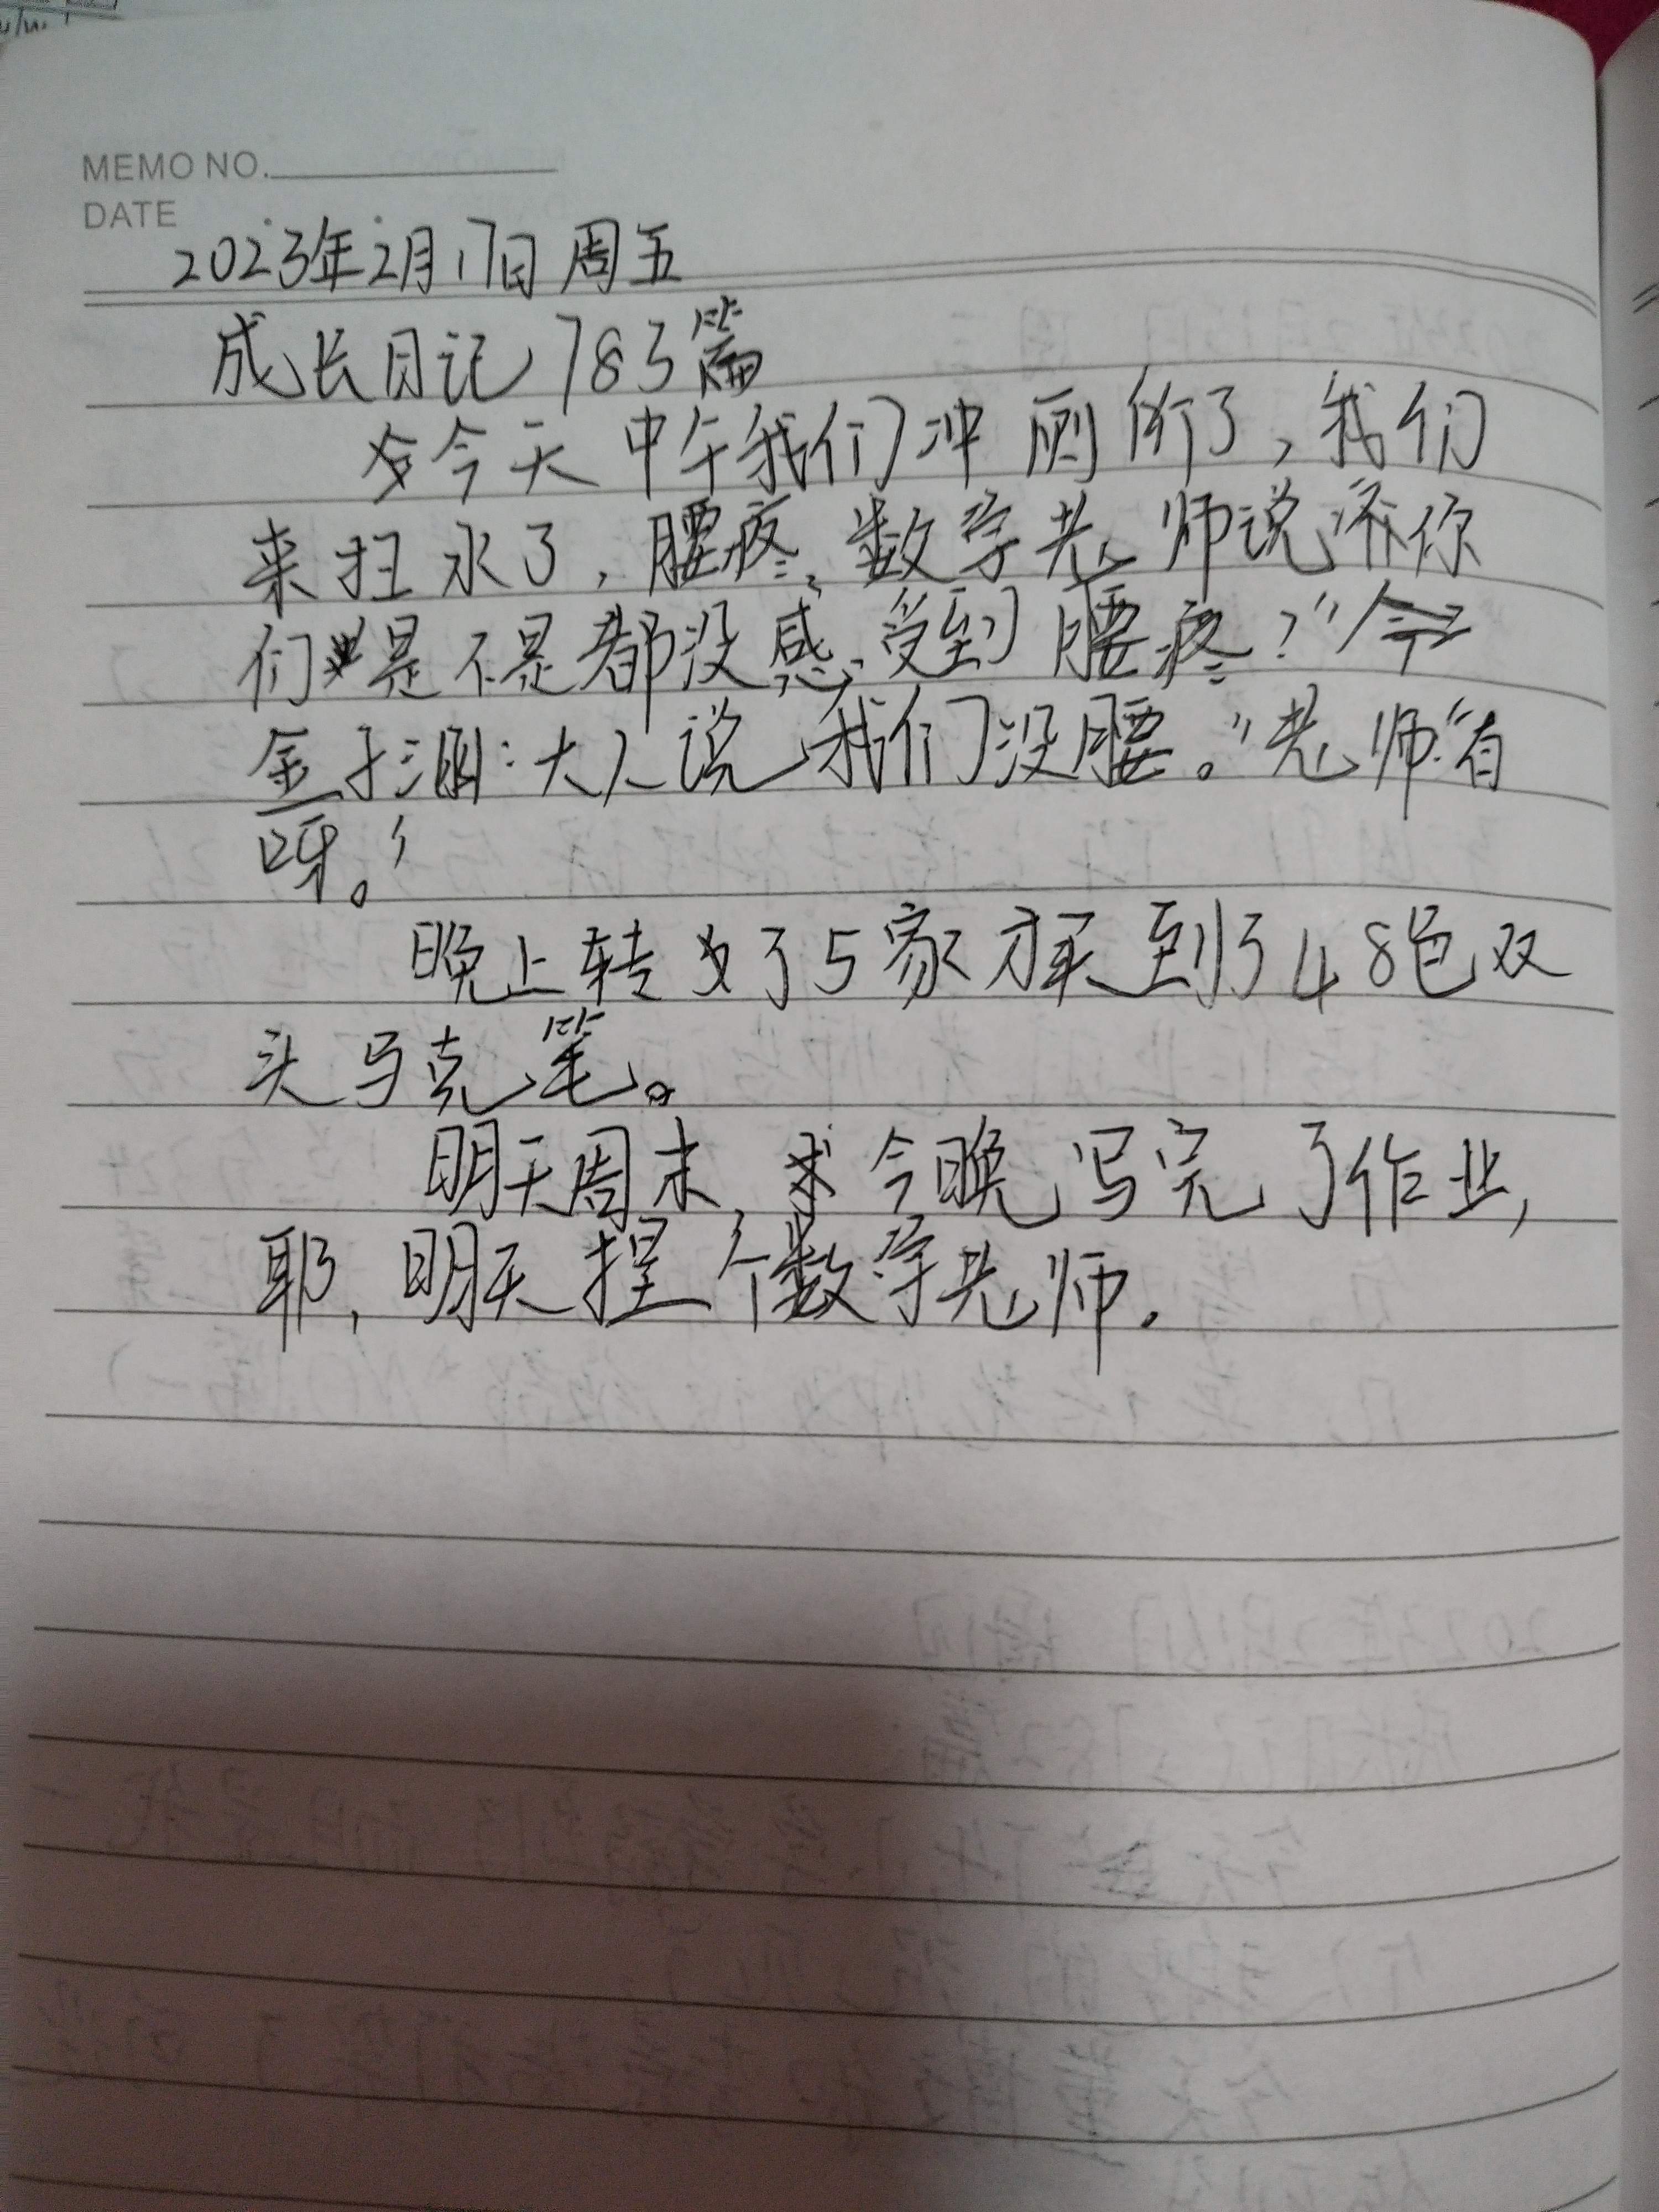 MEMO NO.
DATE
2023年2月17日 周五
成长日记783篇
今天中午我们冲厕所了，我们
来扫水了，腰疼，数学老师说诉你
们是不是都没感受到腰疼？”
金子涵：大人说我们没腰。”老师“有
呀。”
晚上转了5家才买到了48色双
头马克笔。
明天周末，今晚写完了作业，
耶，明天捏个数学老师.